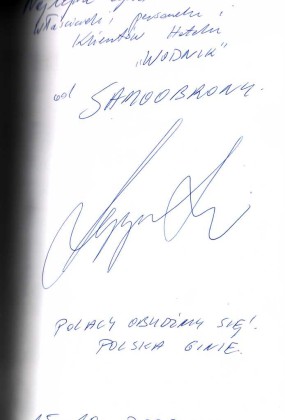 właścicieli, personelu i
Klientów Hotelu
„WODNIK"
od SAMOOBRONY.
POLACY OBUDŹMY SIĘ!
POLSKA GINIE.